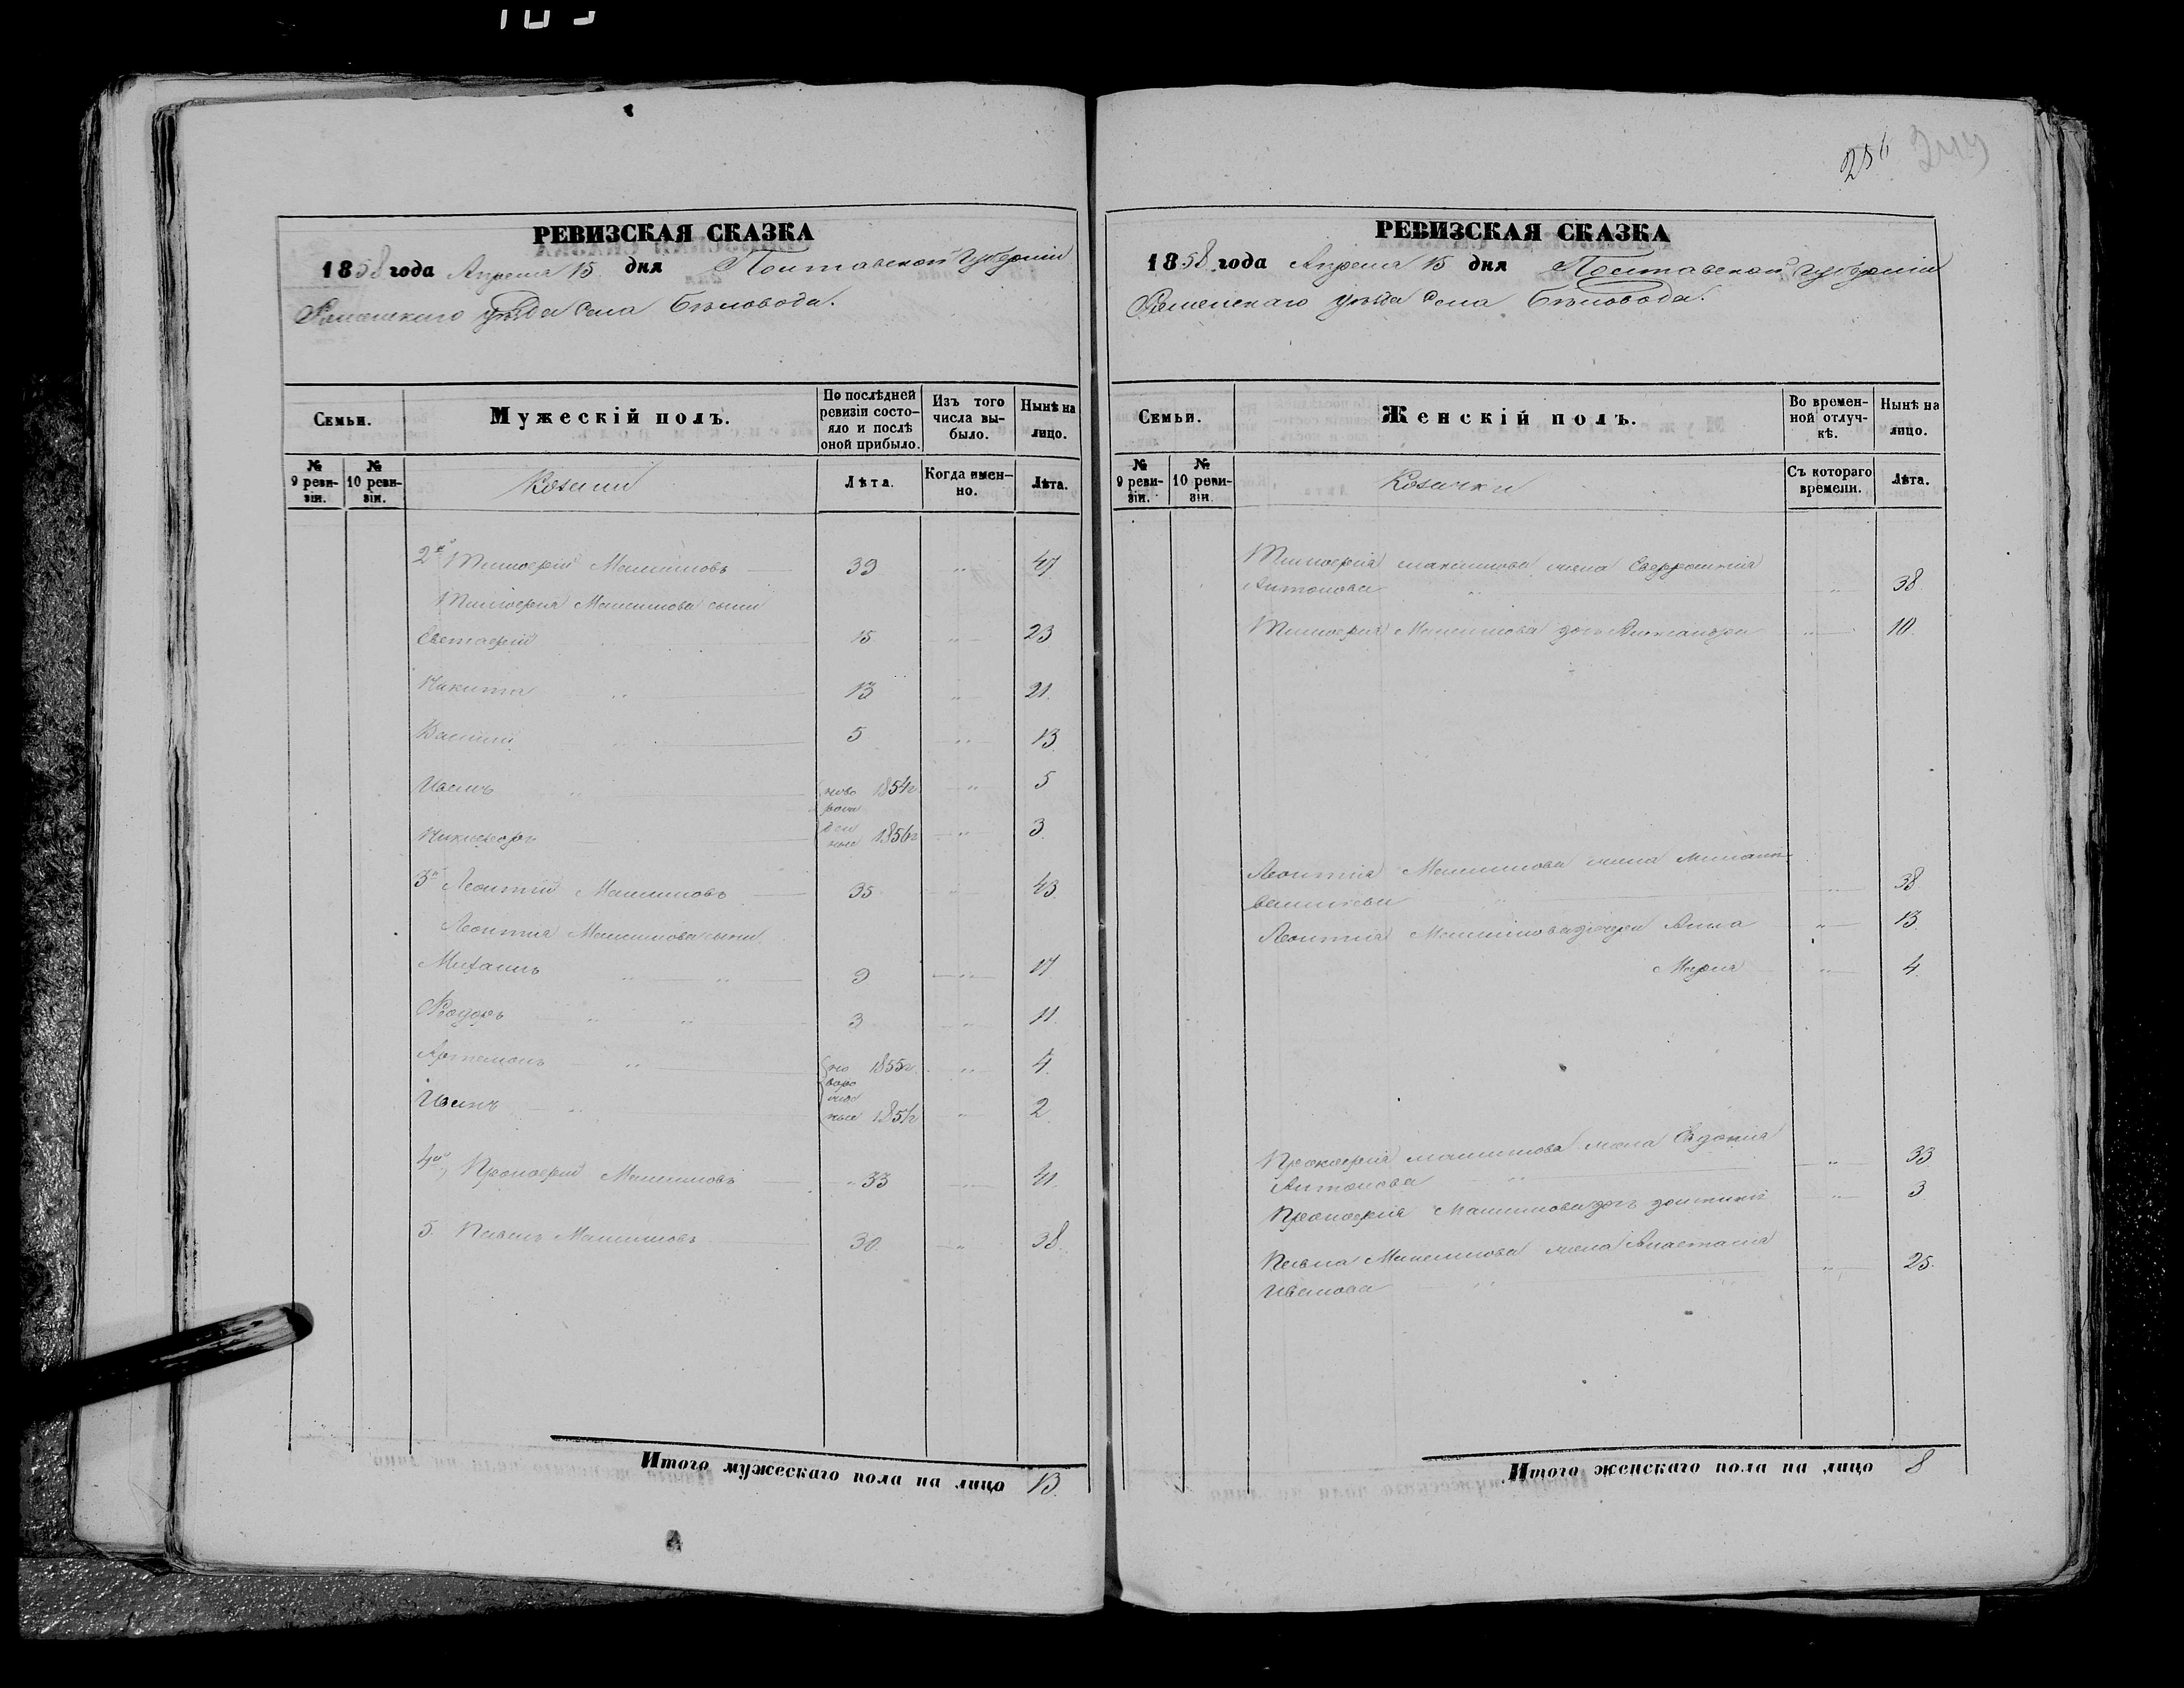 РЕВИЗСКАЯ СКАЗКА
1858 года Апреля 15 дня Полтавской Губерніи
Роменскаго уѣзда Села Бѣловода.
Семьи.
Мужескій полъ.
По послѣдней ревизіи состояло и послѣ оной прибыло.
Изъ того числа выбыло.
Нынѣ на лицо.
№ 9 ревизіи.
№ 10 ревизіи.
Козаки
Лѣта.
Когда именно.
Лѣта.
2й Тимофей Максимовъ 39 " 47
Тимофея Максимова сыни
15 " 23
Никита " 13 " 21.
Василій " 5 " 13.
Иванъ " 1854г " 5
Никифоръ 1856г " 3.
3й Леонтій Максимовъ 35 " 43
Леонтия Максимова сыни
Михаилъ " " 9 " 17
Федоръ " " 3 " 11.
Артемонъ " 1855г. " 4.
Иванъ " 2
4й Прокофій Максимовъ 33 " 41.
5. Павелъ Максимовъ 30 " 38.
Итого мужескаго пола на лицо 13.
256
РЕВИЗСКАЯ СКАЗКА
1858 года Апреля 15 дня Полтавской Губерніи
Роменскаго уѣзда Села Бѣловода.
Семьи.
Женскій полъ.
Во временной отлучкѣ.
Нынѣ на лицо.
№ 9 ревизіи.
№ 10 ревизіи.
Козачки
Съ котораго времени.
Лѣта.
Тимофея Максимова жена
Антонова " " 38.
Тимофея Максимова дочь " 10.
Леонтия Максимова жена
" " 38
Леонтия Максимова дочери Анна " 13
Мария " 4.
Прокофія Максимова жена Евдокия
Антонова " " 33
Прокофия Максимова дочь " 3
Павла Максимова жена Анастасия
Иванова " " 25.
Итого женскаго пола на лицо 8